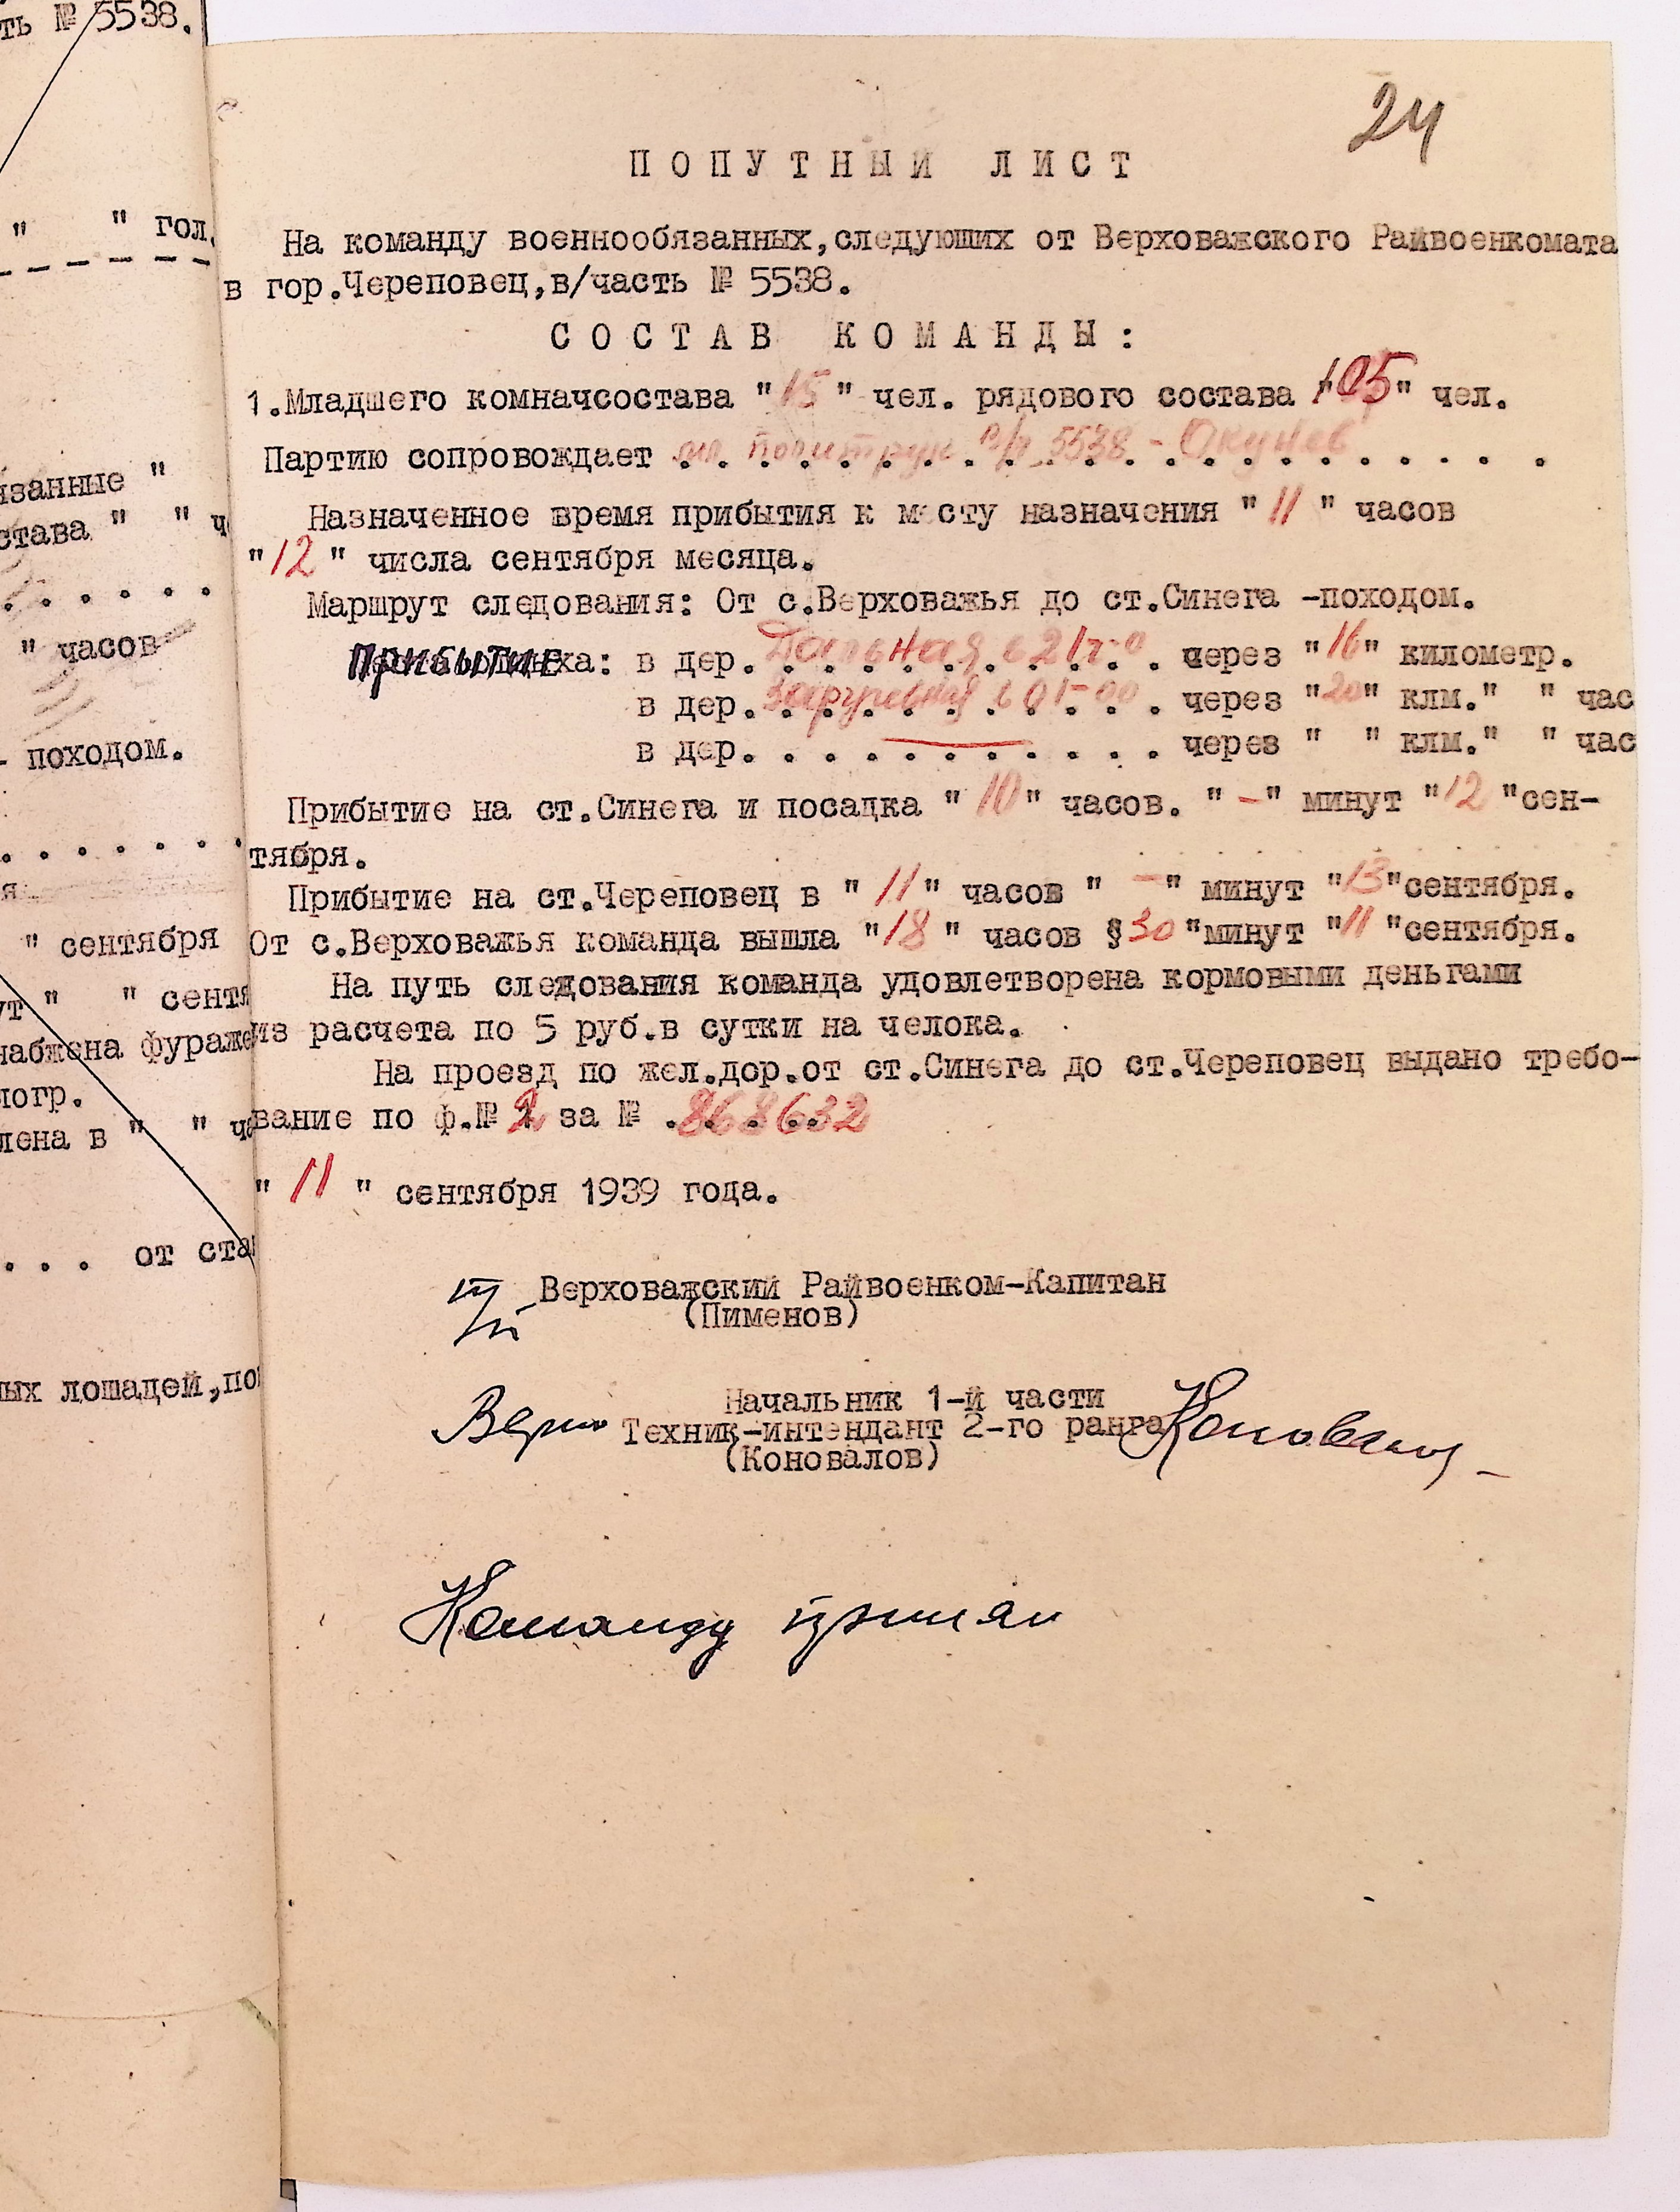 ть № 5538.
" " гол.
язанные "
става " " ч
" часов
- походом.
я
" сентября
ут " " сентя
набжена фураже
логр.
лена в " " ча
. . . от ста
ых лошадей,по
24
ПОПУТНЫЙ ЛИСТ
На команду военнообязанных,следующих от Верховажского Райвоенкомата
в гор.Череповец,в/часть № 5538.
СОСТАВ КОМАНДЫ:
1.Младшего комначсостава "15" чел. рядового состава "105" чел.
Партию сопровождает мл. политрук в/ч 5538 - Окунев
Назначенное время прибытия к месту назначения "11" часов
"12" числа сентября месяца.
Маршрут следования: От с.Верховажья до ст.Синега -походом.
ПРИБЫТИЕ: в дер. . . . . . . . . . . . через "16" километр.
в дер. . . . . . . . . . . . через "20" клм." " час
в дер. . . . . . . . . . . . через " " клм." " час
Прибытие на ст.Синега и посадка "10" часов. "-" минут "12"сен-
тября.
Прибытие на ст.Череповец в "11" часов "-" минут "13"сентября.
От с.Верховажья команда вышла "18" часов §30"минут "11"сентября.
На путь следования команда удовлетворена кормовыми деньгами
из расчета по 5 руб.в сутки на челока.
На проезд по жел.дор.от ст.Синега до ст.Череповец выдано требо-
вание по ф.№ 2 за № .868632
"11" сентября 1939 года.
Верховажский Райвоенком-Капитан
(Пименов)
Начальник 1-й части
Верно Техник-интендант 2-го ранга Коновалов
(Коновалов)
Команду принял